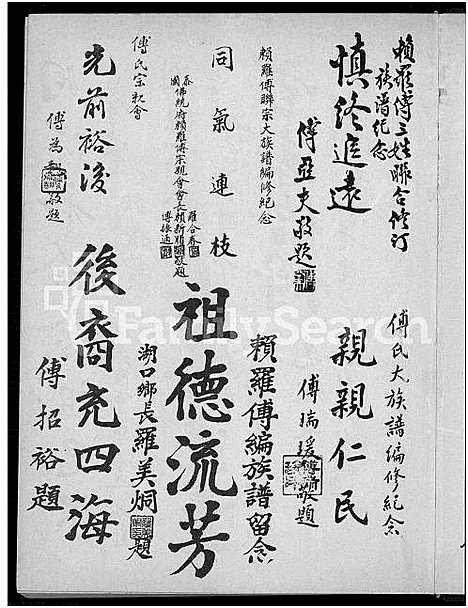 賴羅傅三姓聯合修訂
族譜紀念
慎終追遠
傅亞夫敬題
賴羅傅聯宗大族譜編修紀念
同氣連枝
羅合春
泰國佛統府賴羅傅宗親會會長賴新順敬題
傅振通
傅氏宗親會
光前裕後
傅為
敬題
傅氏大族譜編修紀念
親親仁民
傅瑞瑗
敬題
賴羅傅編族譜留念
祖德流芳
湖口鄉長羅美炯
題
後裔充四海
傅招裕題
FamilySearch